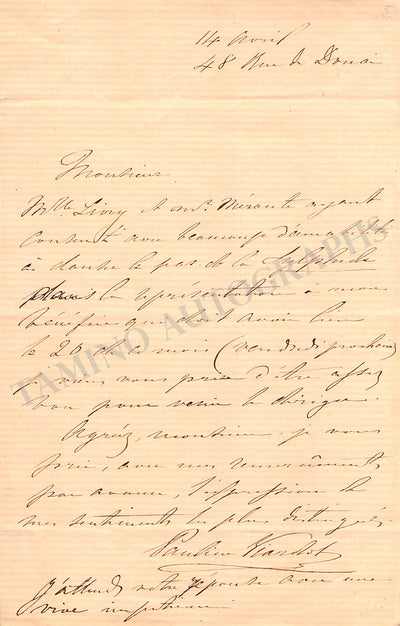 14 avril
48 Rue de Douai
Monsieur
Mlle Livry et Mr. Mérante ayant
consenti avec beaucoup d'amabilité
à danser le pas de la Sylphide
dans la représentation à mon
bénéfice qui doit avoir lieu
le 20 de ce mois (vendredi prochain)
je viens vous prier d'être assez
bon pour venir le diriger.
Agréez, monsieur, je vous
prie, avec mes remerciments
par avance, l'expression de
mes sentiments les plus distingués
Pauline Viardot
J'attends votre réponse avec une
vive impatience
TAMINO AUTOGRAPHS